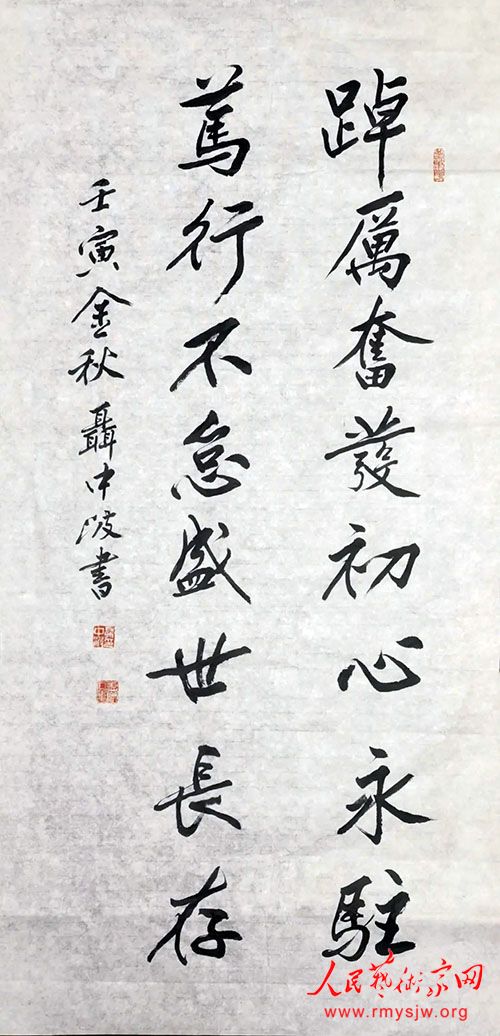 踔厲奮發初心永駐
篤行不怠盛世長存
壬寅金秋聶中陂書
人民藝術家网
www.rmysjw.org